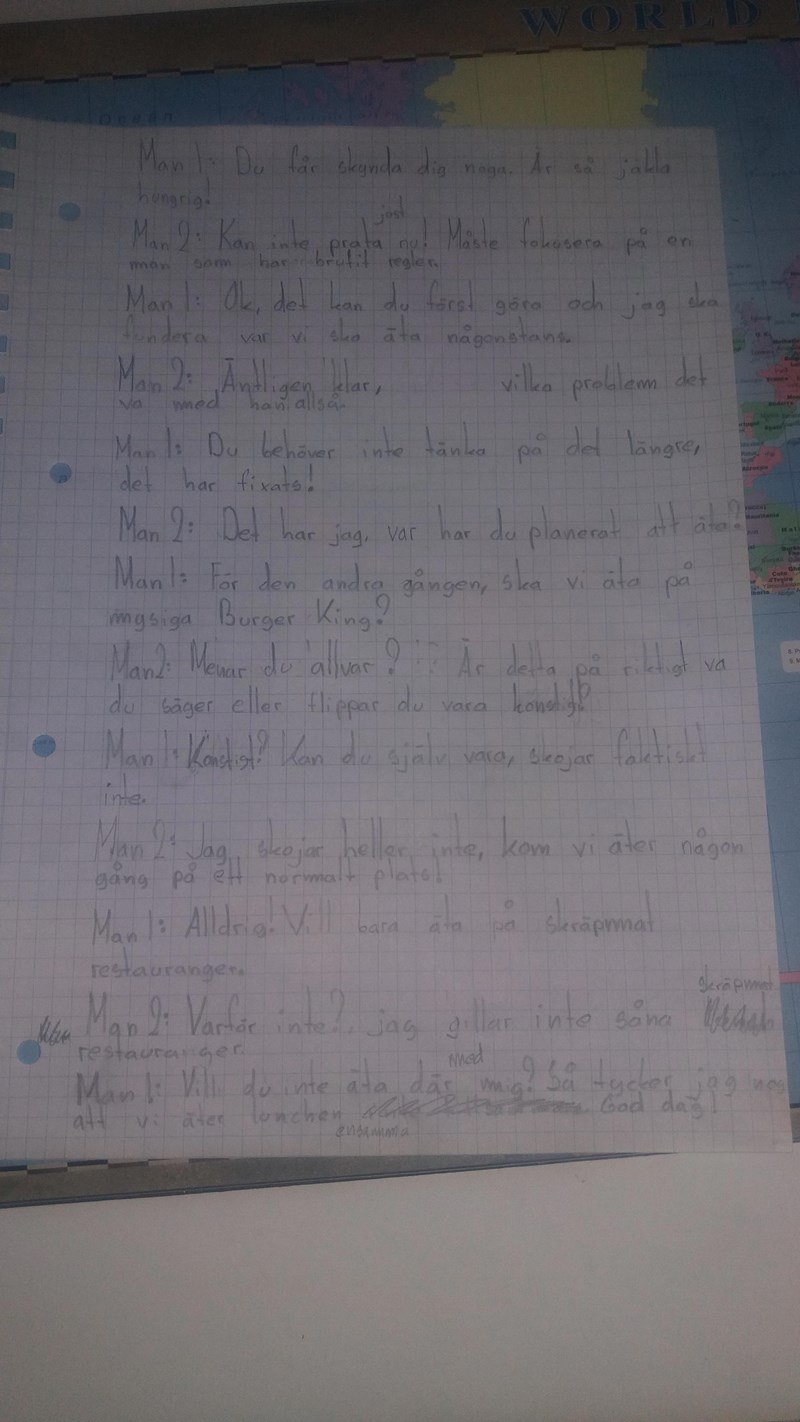 WORLD
Ocean
Man 1: Du får skynda dig noga. Är så jäkla
hungrig!
just
Man 2: Kan inte prata nu! Måste fokusera på en
man som har brutit regler.
Man 1: Ok, det kan du först göra och jag ska
fundera var vi ska äta någonstans.
Man 2: Äntligen klar, vilka problem det
va med han allså.
Man 1: Du behöver inte tänka på det längre,
det har fixats!
Man 2: Det har jag, var har du planerat att äta?
Man 1: För den andra gången, ska vi äta på
mysiga Burger King?
Man 2: Menar du allvar? Är detta på riktigt va
du säger eller flippar du vara konstig?
Man 1: Konstigt? Kan du själv vara, skojar faktiskt
inte.
Man 2: Jag skojar heller inte, kom vi äter någon
gång på ett normalt plats!
Man 1: Alldrig! Vill bara äta på skräpmat
restauranger.
skräpmat
Man 2: Varför inte?, jag gillar inte såna
restauranger.
med
Man 1: Vill du inte äta där mig? Så tycker jag nog
att vi äter lunchen God dag!
ensamma